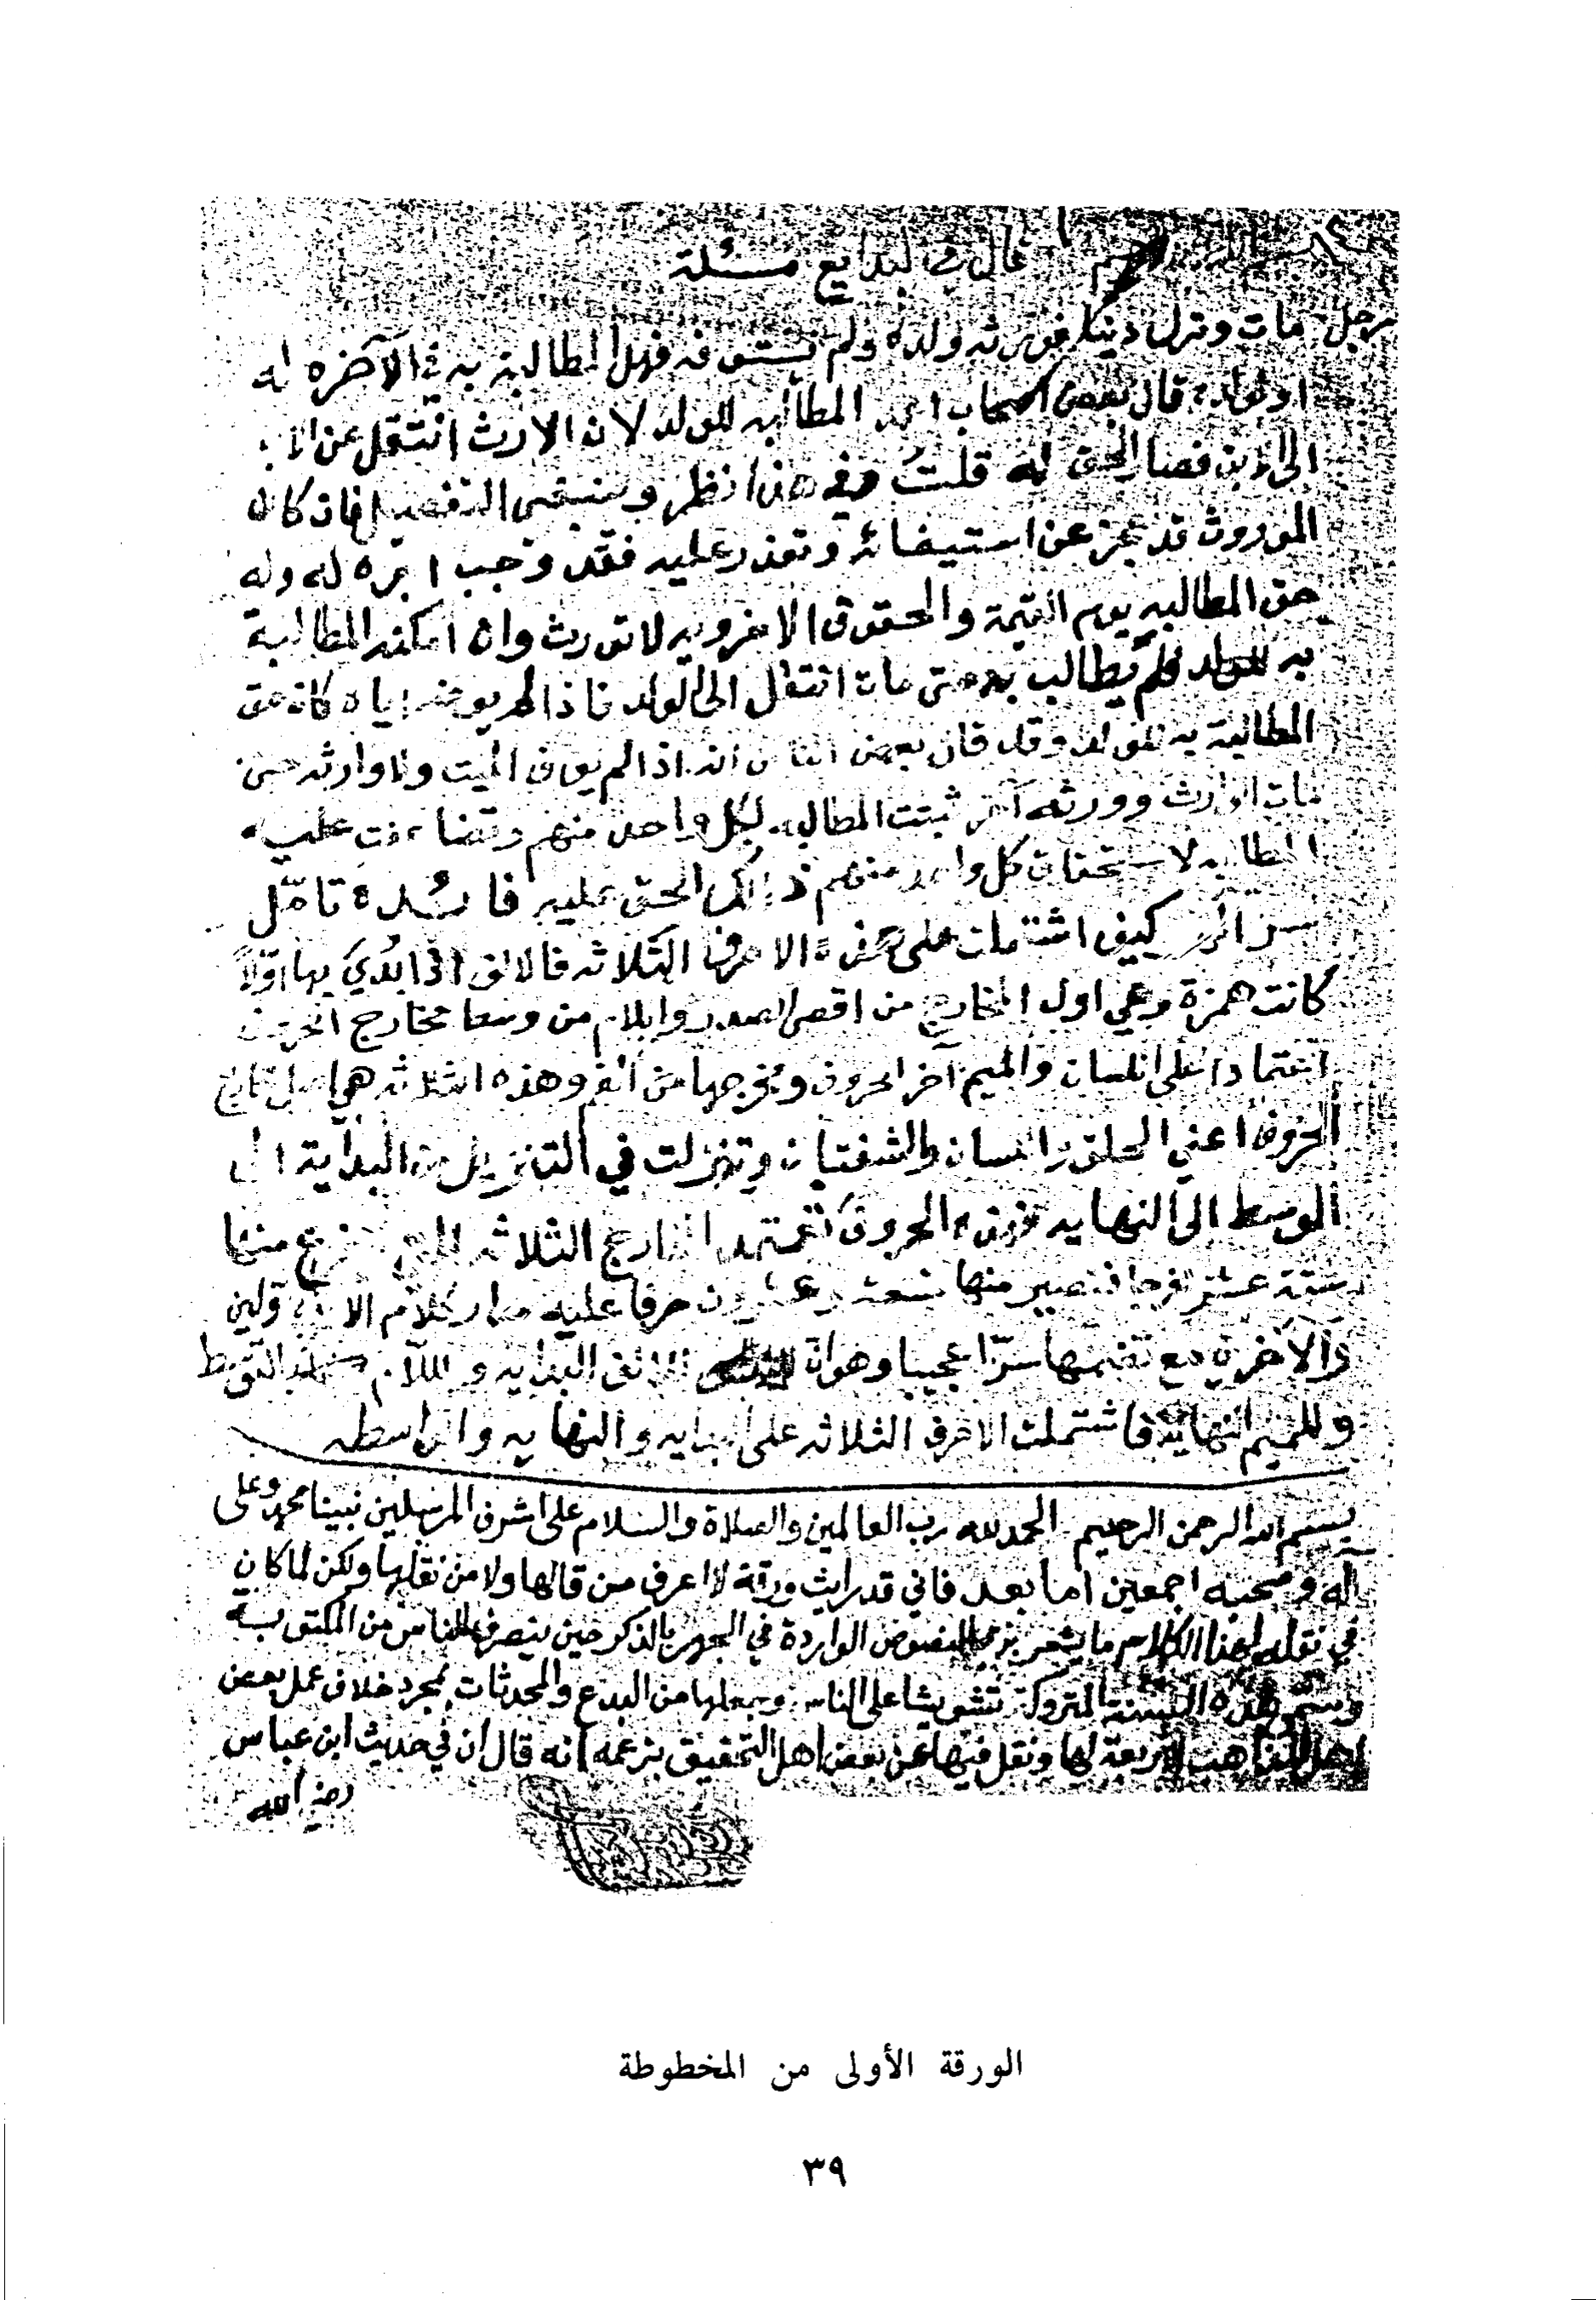 بسم الله الرحمن الرحيم قال في البدايع مسئلة
رجل مات وترك دينا فورثه ولده ولم يستوفه فهل المطالبة به في الآخره له
او لولده قال بعض اصحاب احمد المطالبه للولد لان الارث انتقل عن الاب
الى الابن فصار الحق له قلت وفي هذا نظر وينبغي التفصيل فان كان
الموروث قد عجز عن استيفائه وتعذر عليه فقد وجب اجره له وله
حق المطالبه يوم القيمة والحقوق الاخرويه لا تورث وان امكنه المطالبة
به فلم يطالب به حتى مات انتقل الى الولد فاذا لم يوفه اياه كان حق
المطالبة به للولد وقد قال بعض الناس انه اذا لم يوف الميت ولا وارثه حتى
مات الوارث وورثه آخر ثبتت المطالبه لكل واحد منهم وتضاعفت عليه
المطالبه لاستحقاق كل واحد منهم ذلك الحق عليه فائدة تأمل
سر الم كيف اشتملت على هذه الاحرف الثلاثه فالالف اذا بُدِيَ بها اولاً
كانت همزة وهي اول المخارج من اقصى الصدر واللام من وسط مخارج الحروف
اعتمادا على اللسان والميم آخر الحروف ومخرجها من الفم وهذه الثلاثه هي اصل مخارج
الحروف اعني الحلق واللسان والشفتان وتنزلت في التنزيل من البداية الى
الوسط الى النهايه فهذه الحروف تعتمد المخارج الثلاثه التي تفرع منها
ستة عشر مخرجا فتصير منها تسعة وعشرون حرفا عليه مدار كلام الاولين
والآخرين مع تضمنها سرّا عجيبا وهو ان الالف البدايه واللام التوسط
وللميم النهاية فاشتملت الاحرف الثلاثه على البدايه والنهايه والواسطه
بسم الله الرحمن الرحيم الحمد لله رب العالمين والصلاة والسلام على اشرف المرسلين نبينا محمد وعلى
آله وصحبه اجمعين اما بعد فاني قد رايت ورقة لا اعرف من قالها ولا من نقلها ولكن لما كان
في نقله لهذا الكلام ما يشعر بزعم النصوص الواردة في الجهر بالذكر حين ينصرف الناس من المكتوبة
وسمى هذه السنة المتروكة تشويشا على الناس وبجعلها من البدع والمحدثات بمجرد خلاف عمل بعض
اهل المذاهب الاربعة لها ونقل فيها عن بعض اهل التحقيق بزعمه انه قال ان في حديث ابن عباس
رضي الله
الورقة الأولى من المخطوطة
٣٩